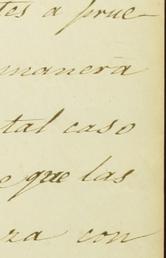 tes a prue
manera
tal caso
e que las
za con